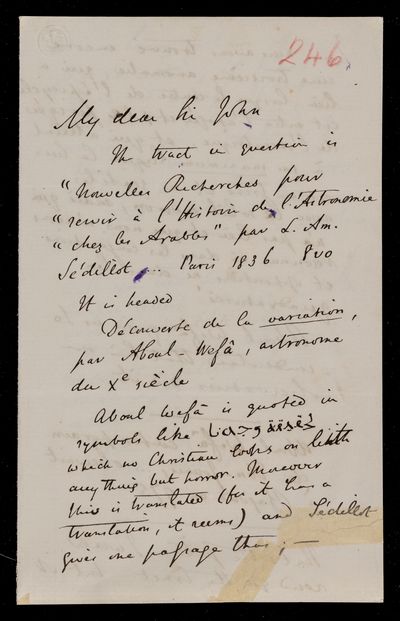 246
My dear Sir John
The tract in question is
"Nouvelles Recherches pour
"servir à l'Histoire de l'Astronomie
"chez les Arabes" par L. Am.
Sédillot ... Paris 1836 8vo
It is headed
Découverte de la variation,
par Aboul-Wefâ, astronome
du Xe siècle
Aboul Wefâ is quoted in
symbols like
which no Christian looks on with
anything but horror. Moreover
this is translated (for it has a
translation, it seems) and Sédillot
gives one passage thus; —